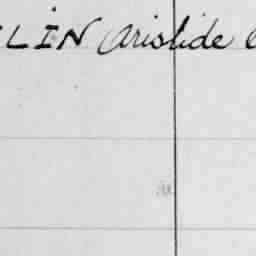 LIN Aristide